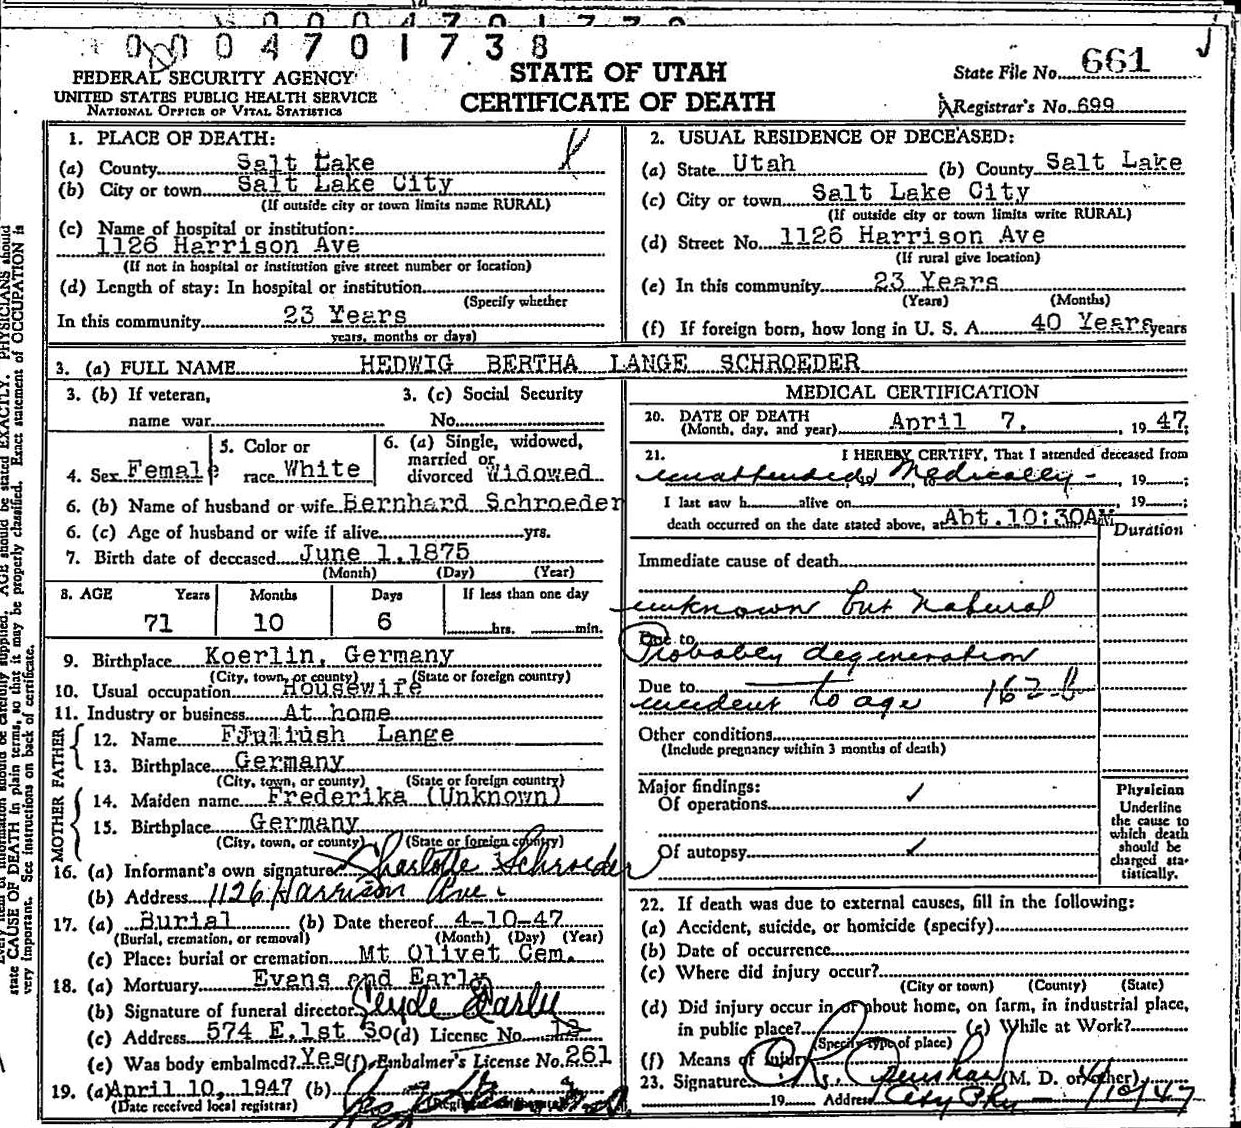 0004701738
FEDERAL SECURITY AGENCY
UNITED STATES PUBLIC HEALTH SERVICE
NATIONAL OFFICE OF VITAL STATISTICS
STATE OF UTAH
CERTIFICATE OF DEATH
State File No. 661
Registrar's No. 699
1. PLACE OF DEATH:
(a) County Salt Lake
(b) City or town Salt Lake City
(If outside city or town limits name RURAL)
(c) Name of hospital or institution:
1126 Harrison Ave
(If not in hospital or institution give street number or location)
(d) Length of stay: In hospital or institution
(Specify whether
In this community 23 Years
years, months or days)
2. USUAL RESIDENCE OF DECEASED:
(a) State Utah (b) County Salt Lake
(c) City or town Salt Lake City
(If outside city or town limits write RURAL)
(d) Street No. 1126 Harrison Ave
(If rural give location)
(e) In this community 23 Years
(Years) (Months)
(f) If foreign born, how long in U. S. A. 40 Years years
3. (a) FULL NAME HEDWIG BERTHA LANGE SCHROEDER
3. (b) If veteran,
name war
3. (c) Social Security
No.
4. Sex Female
5. Color or
race White
6. (a) Single, widowed,
married or
divorced Widowed
6. (b) Name of husband or wife Bernhard Schroeder
6. (c) Age of husband or wife if alive yrs.
7. Birth date of deceased June 1, 1875
(Month) (Day) (Year)
8. AGE Years Months Days If less than one day
71 10 6 hrs. min.
9. Birthplace Koerlin, Germany
(City, town, or county) (State or foreign country)
10. Usual occupation Housewife
11. Industry or business At home
FATHER
12. Name FJuliush Lange
13. Birthplace Germany
(City, town, or county) (State or foreign country)
MOTHER
14. Maiden name Frederika (Unknown)
15. Birthplace Germany
(City, town, or county) (State or foreign country)
16. (a) Informant's own signature Charlotte Schroeder
(b) Address 1126 Harrison Ave.
17. (a) Burial (b) Date thereof 4-10-47
(Burial, cremation, or removal) (Month) (Day) (Year)
(c) Place: burial or cremation Mt Olivet Cem.
18. (a) Mortuary Evans and Early
(b) Signature of funeral director Clyde Early
(c) Address 574 E.1st So (d) License No. 12
(e) Was body embalmed? Yes (f) Embalmer's License No. 261
19. (a) April 10, 1947 (b)
(Date received local registrar)
MEDICAL CERTIFICATION
20. DATE OF DEATH
(Month, day, and year) April 7, 1947;
21. I HEREBY CERTIFY, That I attended deceased from
unattended Medically - , 19 ;
I last saw h alive on , 19 ;
death occurred on the date stated above, at Abt. 10:30AM
Duration
Immediate cause of death
unknown but Natural
Due to
Probably degeneration
Due to
incident to age 162-b
Other conditions
(Include pregnancy within 3 months of death)
Major findings:
Of operations ✓
Of autopsy ✓
Physician
Underline
the cause to
which death
should be
charged sta-
tistically.
22. If death was due to external causes, fill in the following:
(a) Accident, suicide, or homicide (specify)
(b) Date of occurrence
(c) Where did injury occur?
(City or town) (County) (State)
(d) Did injury occur in or about home, on farm, in industrial place,
in public place? (e) While at Work?
(Specify type of place)
(f) Means of Injury
23. Signature (M. D. or other)
19 Address City Phy - 4/10/47
AGE should be stated EXACTLY. PHYSICIANS should
state CAUSE OF DEATH in plain terms, so that it may be properly classified. Exact statement of OCCUPATION is
very important. See instructions on back of certificate.